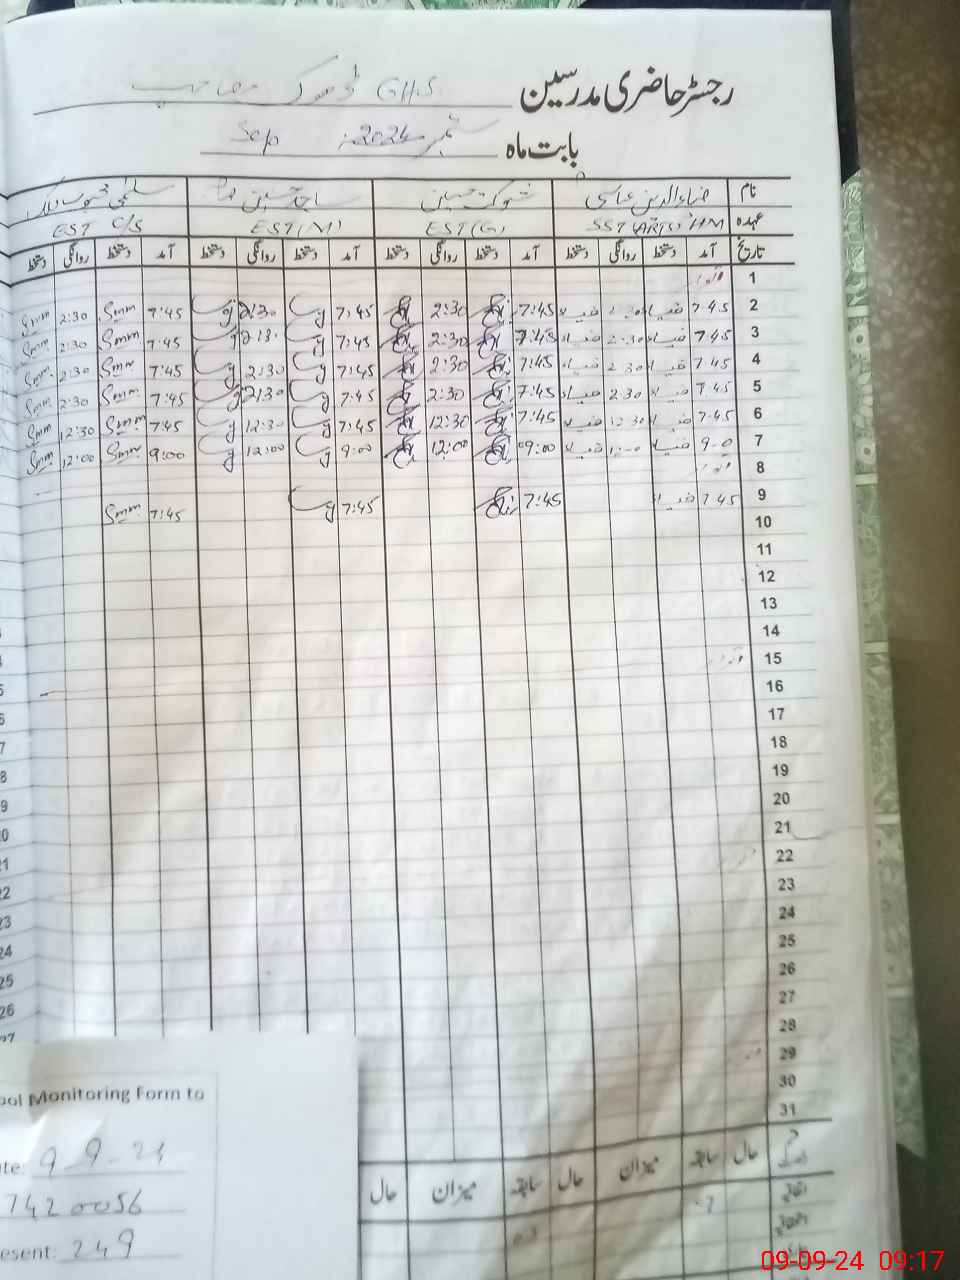 رجسٹر حاضری مدرسین G.H.S ڈھوک صاحب
بابت ماہ ستمبر 2024ء Sep
نام ضیاء الدین عباسی شوکت حسین ساجد حسین سلمیٰ
عہدہ SST (ARTS) HM EST(G) EST(M) EST C/S
تاریخ آمد دستخط روانگی دستخط آمد دستخط روانگی دستخط آمد دستخط روانگی دستخط آمد دستخط روانگی دستخط
1 اتوار
2 7:45 ضیاء 2:30 ضیاء 7:45 2:30 7:45 2:30 7:45 Smm 2:30 Smm
3 7:45 ضیاء 2:30 ضیاء 7:45 2:30 7:45 2:30 7:45 Smm 2:30 Smm
4 7:45 ضیاء 2:30 ضیاء 7:45 2:30 7:45 2:30 7:45 Smm 2:30 Smm
5 7:45 ضیاء 2:30 ضیاء 7:45 2:30 7:45 2:30 7:45 Smm 2:30 Smm
6 7:45 ضیاء 12:30 ضیاء 7:45 12:30 7:45 12:30 7:45 Smm 12:30 Smm
7 9:00 ضیاء 12:00 ضیاء 9:00 12:00 9:00 12:00 9:00 Smm 12:00 Smm
8 اتوار
9 7:45 ضیاء 7:45 7:45 7:45 Smm
10
11
12
13
14
15 اتوار
16
17
18
19
20
21
22 اتوار
23
24
25
26
27
28
29 اتوار
30
31
حال سابقہ میزان حال سابقہ میزان حال
اتفاقیہ
ool Monitoring Form to
te: 9-9-24
7420056
esent: 249
09-09-24 09:17